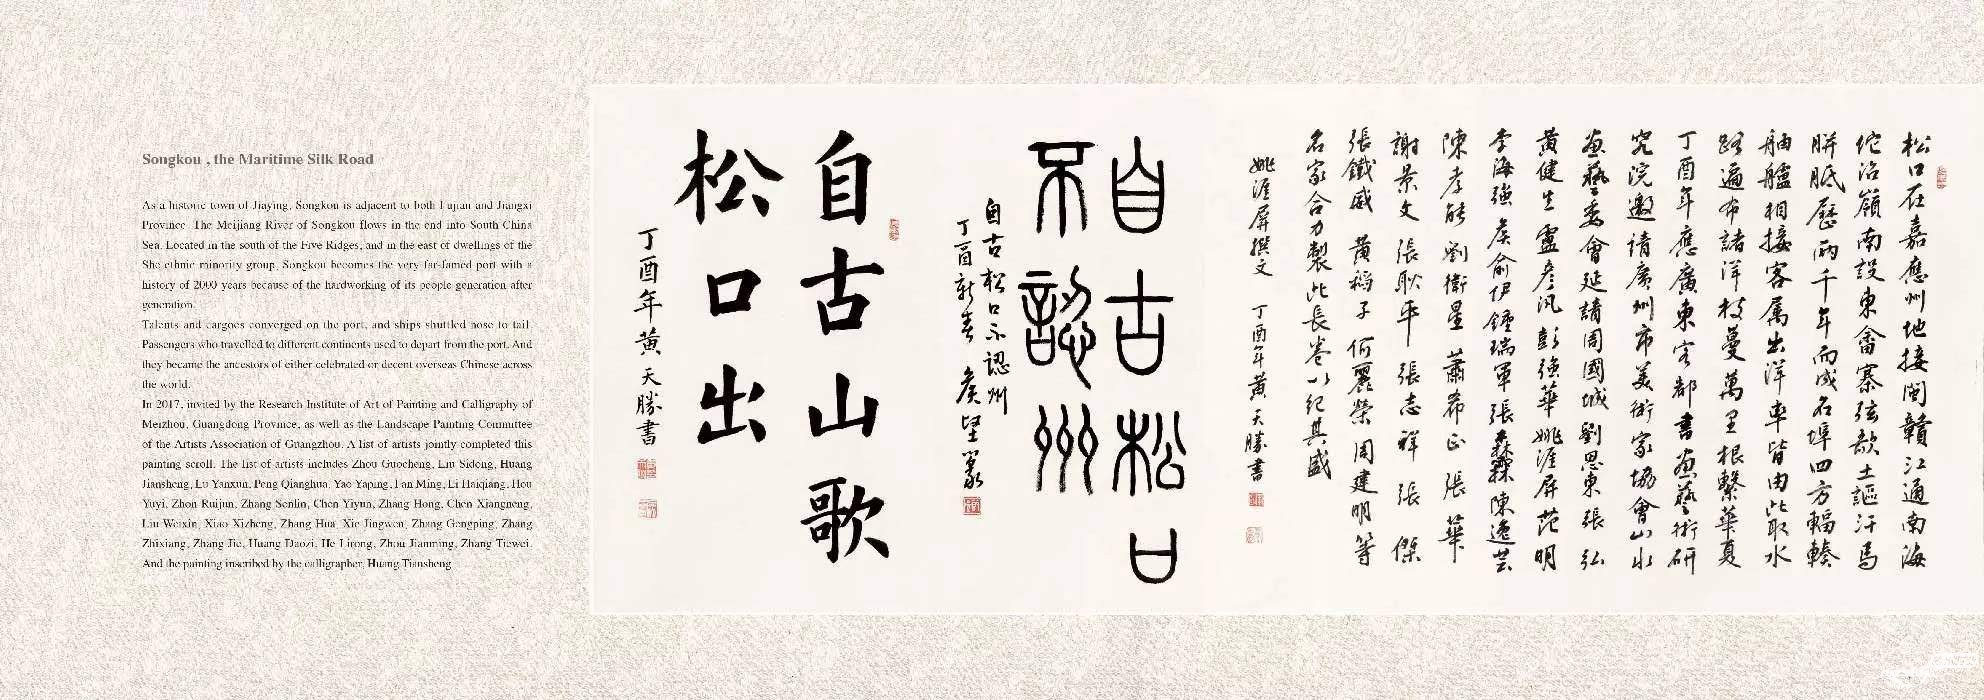 Songkou , the Maritime Silk Road
As a historic town of Jiaying, Songkou is adjacent to both Fujian and Jiangxi
Province. The Meijiang River of Songkou flows in the end into South China
Sea. Located in the south of the Five Ridges, and in the east of dwellings of the
She ethnic minority group, Songkou becomes the very far-famed port with a
history of 2000 years because of the hardworking of its people generation after
generation.
Talents and cargoes converged on the port, and ships shuttled nose to tail.
Passengers who travelled to different continents used to depart from the port. And
they became the ancestors of either celebrated or decent overseas Chinese across
the world.
In 2017, invited by the Research Institute of Art of Painting and Calligraphy of
Meizhou, Guangdong Province, as well as the Landscape Painting Committee
of the Artists Association of Guangzhou. A list of artists jointly completed this
painting scroll. The list of artists includes Zhou Guocheng, Liu Sidong, Huang
Jiansheng, Lu Yanxun, Peng Qianghua, Yao Yaping, Fan Ming, Li Haiqiang, Hou
Yuyi, Zhon Ruijun, Zhang Senlin, Chen Yiyun, Zhang Hong, Chen Xiangneng,
Liu Weixin, Xiao Xizheng, Zhang Hua, Xie Jingwen, Zhang Gengping, Zhang
Zhixiang, Zhang Jie, Huang Daozi, He Lirong, Zhou Jianming, Zhang Tiewei.
And the painting inscribed by the calligrapher, Huang Tiansheng
松口在嘉應州地接閩贛江通南海
佗治嶺南設東畲寨弦歌土謳汗馬
胼胝歷兩千年而成名埠四方輻輳
舳艫相接客属出洋率皆由此取水
路遍布諸洋枝蔓萬里根繫華夏
丁酉年應廣東客都書画藝術研
究院邀請廣州市美術家協會山水
画藝委會延請周國城劉思東張弘
黄健生盧彦汎彭強華姚涯屏范明
李海強侯俞伊鍾瑞軍張森霖陳逸芸
陳孝能劉衛星蕭希正張華
謝景文張耿平張志祥張傑
張鐵威黄稻子何麗榮周建明等
名家合力製此長卷以紀其盛
姚涯屏撰文 丁酉年黄天勝書
自古松口
不認州
自古松口不認州
丁酉新春
自古山歌
松口出
丁酉年黄天勝書